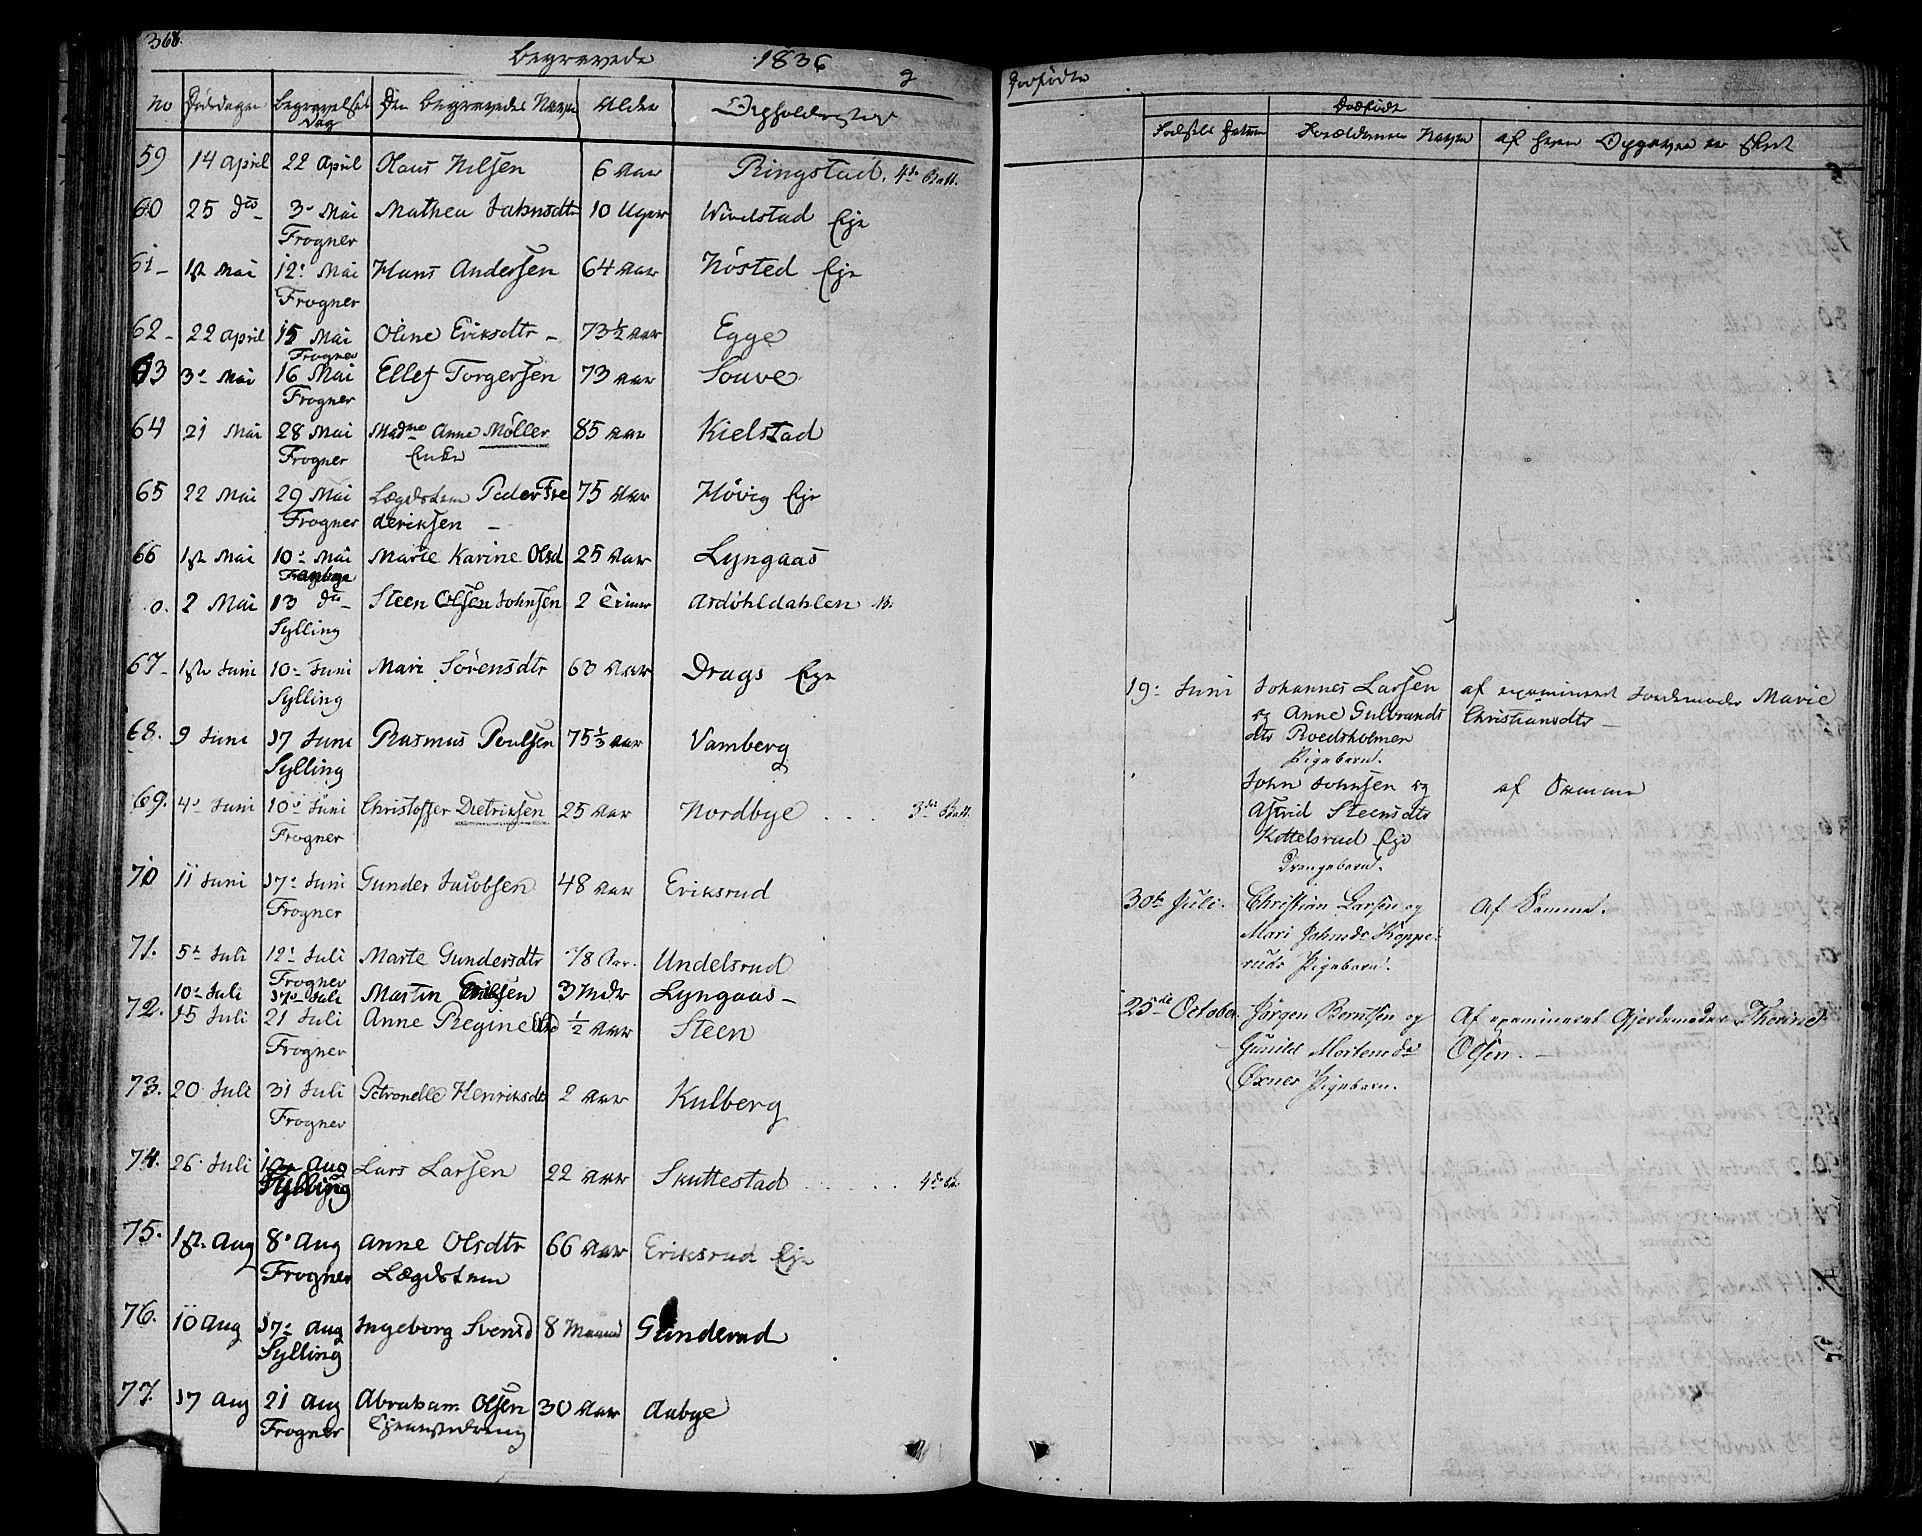 368.
Begravede 1836
No Dødsdagen Begravelses Dag Den Begravedes Navn Alder Opholdssted
59 14 April 22 April Olaus Nilsen 6 Aar Ringstad. 4de Batt.
60 25 dto 3. Mai Mathea Jahnsdtr 10 Uger Wivelstad Eje
Frogner
61 1ste Mai 12. Mai Hans Andersen 64 Aar Nøsted Eje
Frogner
62 22 April 15 Mai Oline Eriksdtr 73½ Aar Egge
Frogner
63 3. Mai 16 Mai Ellef Torgersen 73 Aar Souve
Frogner
64 21 Mai 28 Mai Madme Anne Møller 85 Aar Kielstad
Frogner Enke
65 22 Mai 29 Mai Lægdslem Peder Fre 75 Aar Høvig Eje
Frogner deriksen
66 1ste Mai 10. Mai Marie Karine Olsd 25 Aar Lyngaas
o. 2 Mai 13 dto Steen Olsen Johnsen 2 Timer
Sylling
67 1ste Juni 10. Juni Mari Sörensdtr 63 Aar Drags Eje
Sylling
68. 9 Juni 17 Juni Rasmus Poulsen 75⅓ Aar Vamberg
Sylling
69. 4. Juni 10. Juni Christoffer Dietriksen 25 Aar Nordbye .... 3die Batt.
Frogner
70 11 Juni 17. Juni Gunder Jacobsen 48 Aar Eriksrud
Frogner
71. 5te Juli 12. Juli Marte Gundersdtr 78 Aar. Undelsrud
Frogner
10. Juli 17. Juli Martin 3 Mdr Lyngaas
72. 15 Juli 21 Juli Anne Regine ½ Aar Steen
Frogner
73. 20 Juli 31 Juli Petronelle Henriksdtr 2 Aar Kulberg
Frogner
74. 26. Juli 1ste Aug Lars Larsen 22 Aar Skuttestad ..... 4de
Sylling
75. 1ste. Aug 8. Aug Anne Olsdtr 66 Aar Eriksrud Eje
Frogner Lægdslem
76. 10 Aug 17. Aug Ingeborg Svensd 8 Maaned Gunderud
Sylling
77. 17 Aug 21 Aug Abraham Olsen 30 Aar Aabye
Frogner
Dødfødte
Dødfødt
Fødsels Datum Forældrenes Navne af hvem Opgaven er skeet
19. Juni Johannes Larsen af examineret Jordemoder Marie
og Anne Gulbrands Christiansdtr
dtr Roedsholmen
Pigebarn.
John Johnsen og af Samme
Astrid Steensdtr
Kittelsrud Eje
Drengebarn.
30te Juli. Christian Larsen og Af Samme.
Mari Johnsdr Koppe
ruds Pigebarn.
25de October Jørgen Berntsen og Af examineret Gjordemoder Thorine
Gunild Mortensdr Olsen.
Oxnes Pigebarn.